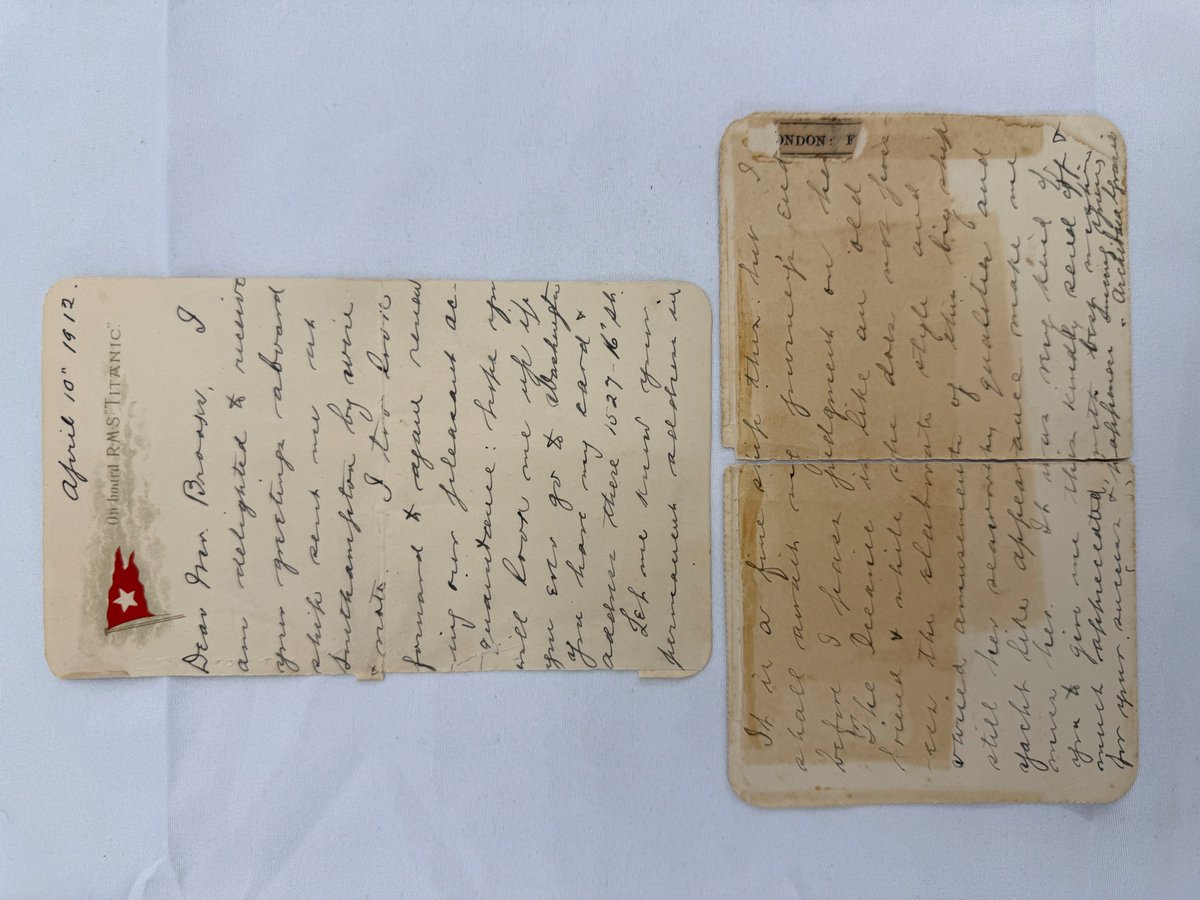 April 10" 1912.
On board R.M.S. "TITANIC."
Dear Mr. Brooks, I
am delighted to receive
your greetings aboard
ship sent me at
Southampton by wire
& note. I too look
forward to again renew
ing our pleasant ac-
quaintance: hope you
will look me up if
you ever go to Washington
you have my card &
address there 1527-16" St.
Let me know your
permanent address in
ONDON: F
It is a fine ship this: but I
shall await my journey's end
before I pass judgment on her
The Oceanic is like an old
friend & while she does not poss-
ess the elaborate style and
varied amusements of this big ship
still her seaworthy qualities and
yacht like appearance make me
miss her. It was very kind of
you to give me this kindly send off &
much appreciated, with best wishes
for your success & happiness Sincerely yours
Archibald Gracie